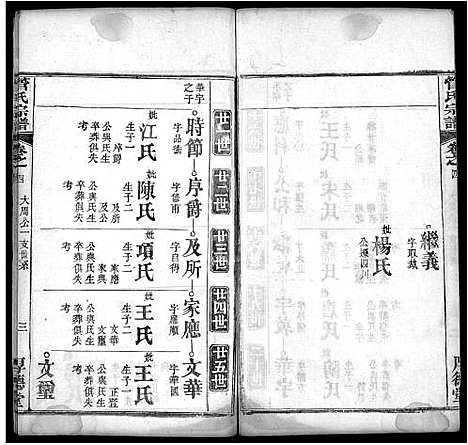 管氏宗譜
卷之四
繼義
字取裁
妣楊氏
公遷四川
廿一世
廿二世
廿三世
廿四世
廿五世
華宇
之子
時節
字品儀
妣江氏
生子一
序爵
公與氏生
卒葬俱失
考
序爵
妣陳氏
生子二
及所
及公
公與氏生
卒葬俱失
考
及所
字自得
妣項氏
生子二
家應
公與氏生
卒葬俱失
考
家應
妣王氏
生子二
文華
文璽
公與氏生
卒葬俱失
考
文華
字華國
妣王氏
生子二
公與氏生
卒葬俱失
考
文璽
管氏宗譜
卷之四
大周公一支世系
三
厚德堂